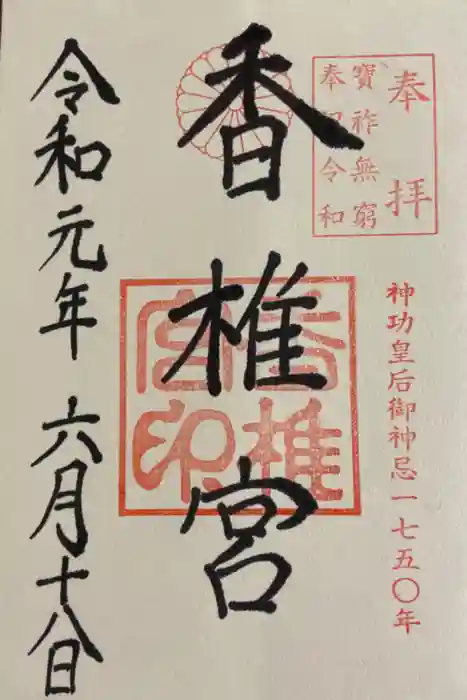 奉拝
寶祚無窮
奉祝令和
神功皇后御神忌一七五〇年
香椎宮
香椎宮印
令和元年 六月十八日